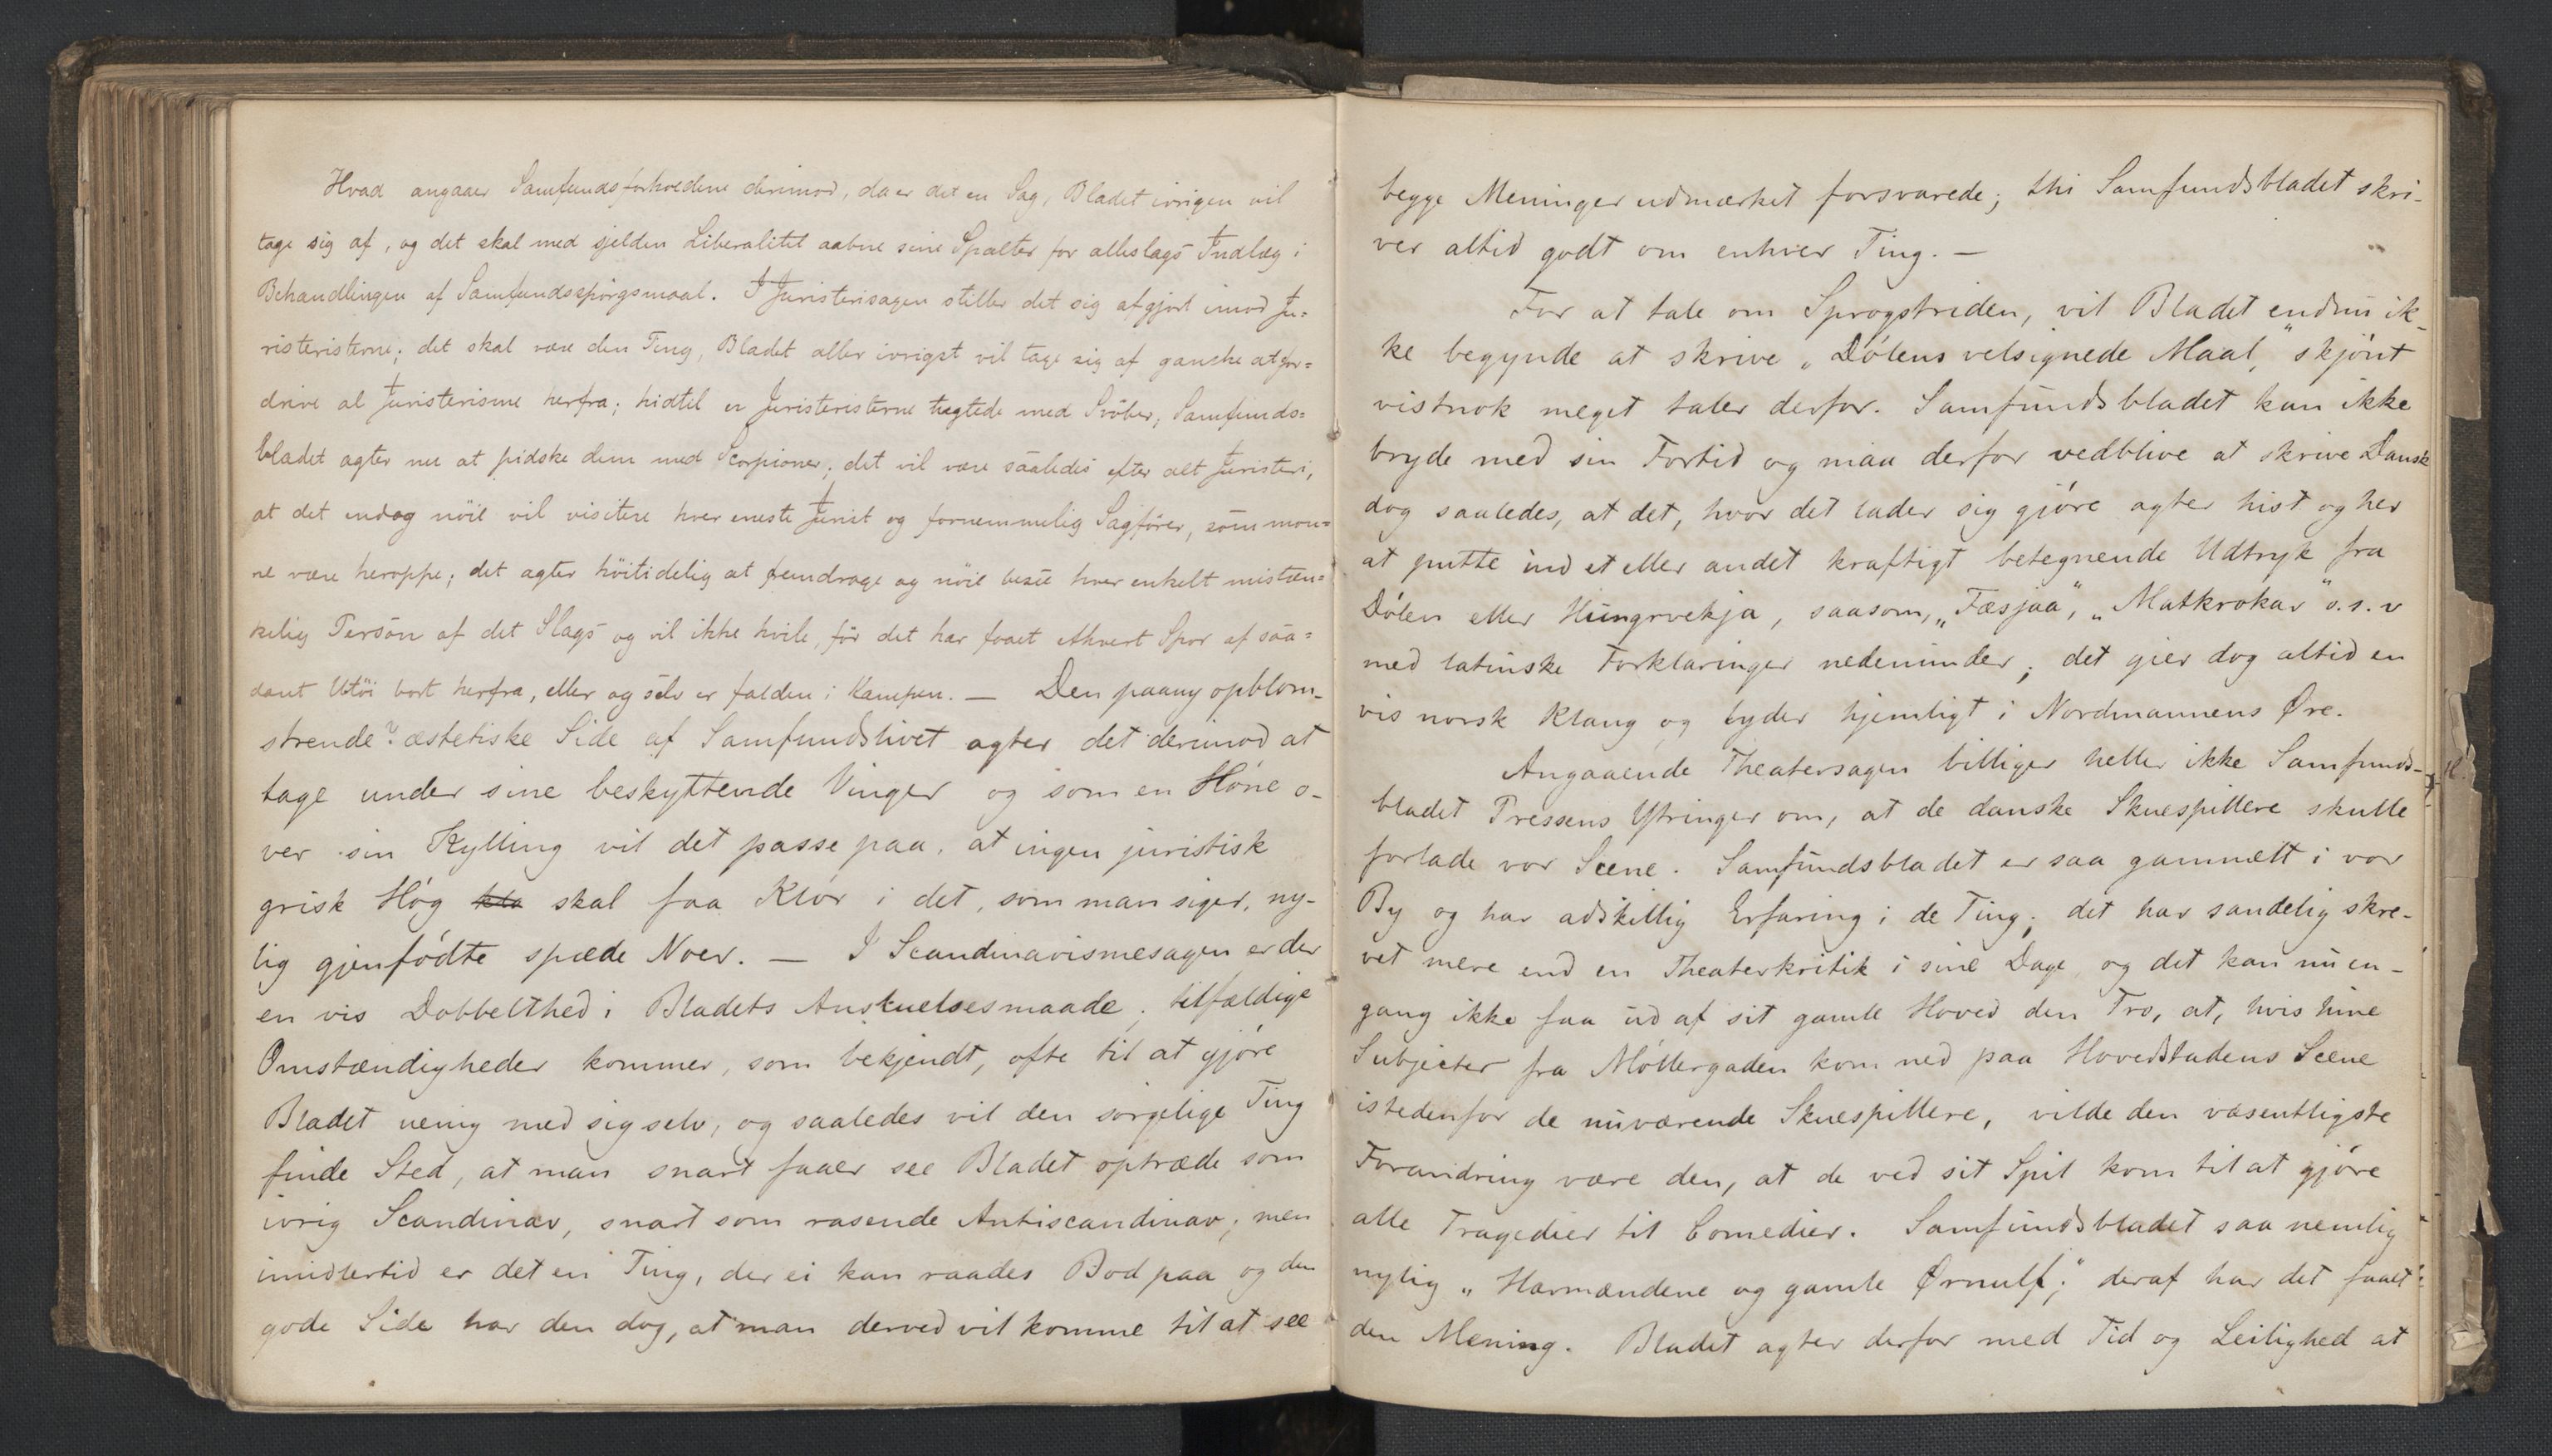 Hvad angaaer Samfundsforholdene derimod, da er det en Sag, Bladet ivrigen vil
tage sig af, og det skal med sjelden Liberalitet aabne sine Spalter for alleslags Indlæg i
Behandlingen af Samfundsspørgsmaal. I Juristerisagen stiller det sig afgjort imod Ju-
risteristerne; det skal være den Ting, Bladet aller ivrigst vil tage sig af ganske at for-
drive al Juristerisme herfra; hidtil er Juristeristerne tugtede med Svöber, Samfunds-
bladet agter nu at pidske dem med Scorpioner; det vil være saaledes efter alt Juristeri,
at det endog nöie vil visitere hver eneste Jurist og fornemmelig Sagförer, som mon-
ne være heroppe; det agter höitidelig at fremdrage og nöie besee hver enkelt mistæn-
kelig Person af det Slags og vil ikke hvile, för det har faaet ethvert Spor af saa-
dant Utöi bort herfra, eller og selv er falden i Kampen. — Den paany opblom-
strende? æstetiske Side af Samfundslivet agter det derimod at
tage under sine beskyttende Vinger og som en Höne o-
ver sin Kylling vil det passe paa, at ingen juristisk
grisk Hög kla skal faa Klör i det, som man siger, ny-
lig gjenfödte spæde Noer. — I Scandinavismesagen er der
en vis Dobbelthed i Bladets Anskuelsesmaade; tilfældige
Omstændigheder kommer, som bekjendt, ofte til at gjöre
Bladet uenig med sig selv, og saaledes vil den sörgelige Ting
finde Sted, at man snart faaer see Bladet optræde som
ivrig Scandinav, snart som rasende Antiscandinav; men
imidlertid er det en Ting, der ei kan raades Bod paa og den
gode Side har den dog, at man derved vil komme til at see
begge Meninger udmærket forsvarede; thi Samfundsbladet skri-
ver altid godt om enhver Ting. —
For at tale om Sprogstriden, vil Bladet endnu ik-
ke begynde at skrive „Dölens velsignede Maal," skjönt
vistnok meget taler derfor. Samfundsbladet kan ikke
bryde med sin Fortid og maa derfor vedblive at skrive Dansk
dog saaledes, at det, hvor det lader sig gjöre agter hist og her
at putte ind et eller andet kraftigt betegnende Udtryk fra
Dölen eller Hungrvekja, saasom, „Fæsjaa", „Matkrokar" o.s.v
med latinske Forklaringer nedenunder; det gier dog altid en
vis norsk Klang og lyder hjemligt i Nordmannens Øre.
Angaaende Theatersagen billiger heller ikke Samfunds-
bladet Pressens Ytringer om, at de danske Skuespillere skulle
forlade vor Scene. Samfundsbladet er saa gammelt i vor
By og har adskillig Erfaring i de Ting; det har sandelig skre-
vet mere end en Theaterkritik i sine Dage og det kan nu en-
gang ikke faa ud af sit gamle Hoved den Tro, at, hvis hine
Subjecter fra Möllergaden kom ned paa Hovedstadens Scene
istedenfor de nuværende Skuespillere, vilde den væsentligste
Forandring være den, at de ved sit Spil kom til at gjöre
alle Tragedier til Comedier. Samfundsbladet saa nemlig
nylig „Harmændene og gamle Ørnulf;" deraf har det faaet
den Mening. Bladet agter derfor med Tid og Leilighed at